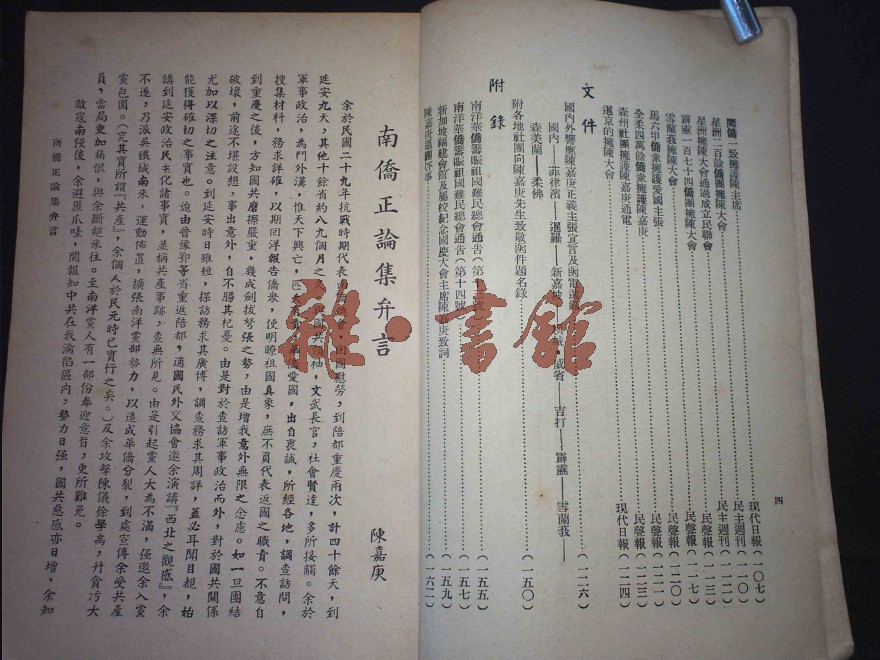 四
閩僑一致擁護陳主席……現代日報(一〇七)
星洲二百餘僑團擁陳大會……民主週刊(一一〇)
星洲擁陳大會通過成立民聯會……民主週刊(一一二)
霹靂一百七十四僑團擁陳大會……民聲報(一一三)
雪蘭我擁陳大會……民聲報(一一七)
馬六甲僑衆擁護愛國主張……民聲報(一二〇)
全柔四萬餘僑衆擁護陳嘉庚……民聲報(一二三)
森州社團擁護陳嘉庚通電……現代日報(一二四)
暹京的擁陳大會
文件
國內外響應陳嘉庚正義主張宣言及函電選……(一二六)
國內——菲律濱——暹羅——新嘉坡——威省——吉打——霹靂——雪蘭我——
森美蘭——柔佛
附各地社團向陳嘉庚先生致敬函件題名錄……(一五〇)
附錄
南洋華僑籌賑祖國難民總會通告……(一五五)
南洋華僑籌賑祖國難民總會通告(第十四號)……(一五七)
新加坡福建會館及屬校紀念國慶大會主席陳嘉庚致詞……(一五九)
陳嘉庚啓事……(一六二)
南僑正論集弁言
陳嘉庚
余於民國二十九年抗戰時期代表南僑總會,回國慰勞,到陪都重慶兩次,計四十餘天,到
延安九天,其他十餘省約八九個月之久,國共領袖,文武長官,社會賢達,多所接觸。余於
軍事政治,為門外漢,惟天下興亡,匹夫有責,華僑愛國,出自衷誠,所經各地,調查訪問,
搜集材料,務求詳確,以期回洋報告僑衆,使明瞭祖國真象,庶不負代表返國之職責。不意自
到重慶之後,方知國共磨擦嚴重,幾成劍拔弩張之勢,由是增我意外無限之念慮。如一旦團結
破壞,前途不堪設想,事出意外,自不勝其杞憂。由是對於查訪軍事政治而外,對於國共關係
尤加以深切之注意。到延安時日雖短,採訪務求其廣博,調查務求其周詳,蓋必耳聞目睹,始
能獲得確切之事實也。迨由晉豫鄂等省重返陪都,適國民外交協會邀余演講『西北之觀感』,余
講到延安政治民主化諸事實,並稱共產事跡,查無所見。由是引起黨人大為不滿,強邀余入黨
不遂,乃派吳鐵城南來,運動佈置,擴張南洋黨部勢力,以造成華僑分裂,到處宣傳余受共產
黨包圍。(究其實所謂『共產』,余個人於民元時已實行之矣。)及余攻擊陳儀徐學禹,升貪污大
員,當局更加痛恨,與余斷絕來往。至南洋黨人有一部份奉迎意旨,更所難免。
敵寇南侵後,余避匿爪哇,聞報知中共在我淪陷區內,勢力日强,國共惡感亦日增,余知
南僑正論集弁言
雅·書館